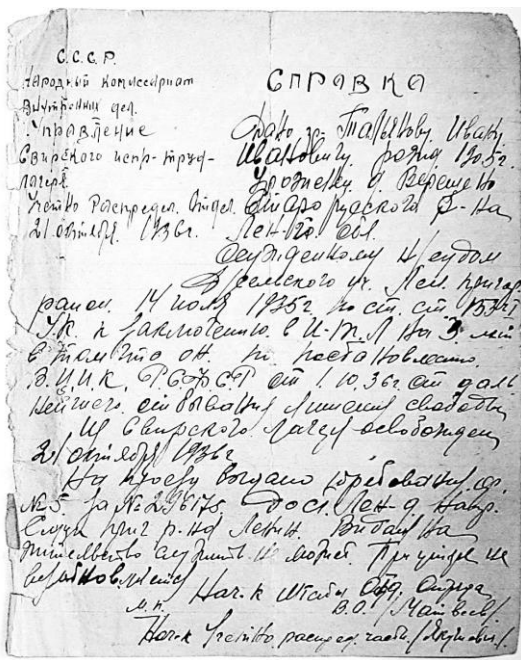 С.С.С.Р.
Народный Комиссариат
Внутренних дел.
Управление
Свирского испр-труд-
лагеря.
Учетно Распредел. Отдел
21 октября 1936г.
СПРАВКА
Дано гр. Талянову Ивану
Ивановичу рожд 1905г.
Уроженцу д. Верещено
Старо русского р-на
Лен-го обл.
осужденному Нсудом
уч. Лен. пригор
район. 14 июля 1935г. по ст. ст.
У.К. к заключению в И-Т Л на 3 лет
в том что он по постановлению
В.Ц.И.К. Р.С.Ф.С.Р от 1.10.36г. от даль
нейшего отбывания лишения свободы
Из Свирского лагеря освобожден
21 октября 1936г
На проезд выдано требование
№5. за №296175 до ст Лен-д
приг р-на Ленин. Видом на
жительство служить не может. При утере не
возобновляется
Нач-к Отд.
м.п. В.О. /Матвеев/
Нач-к Учетно распред. части